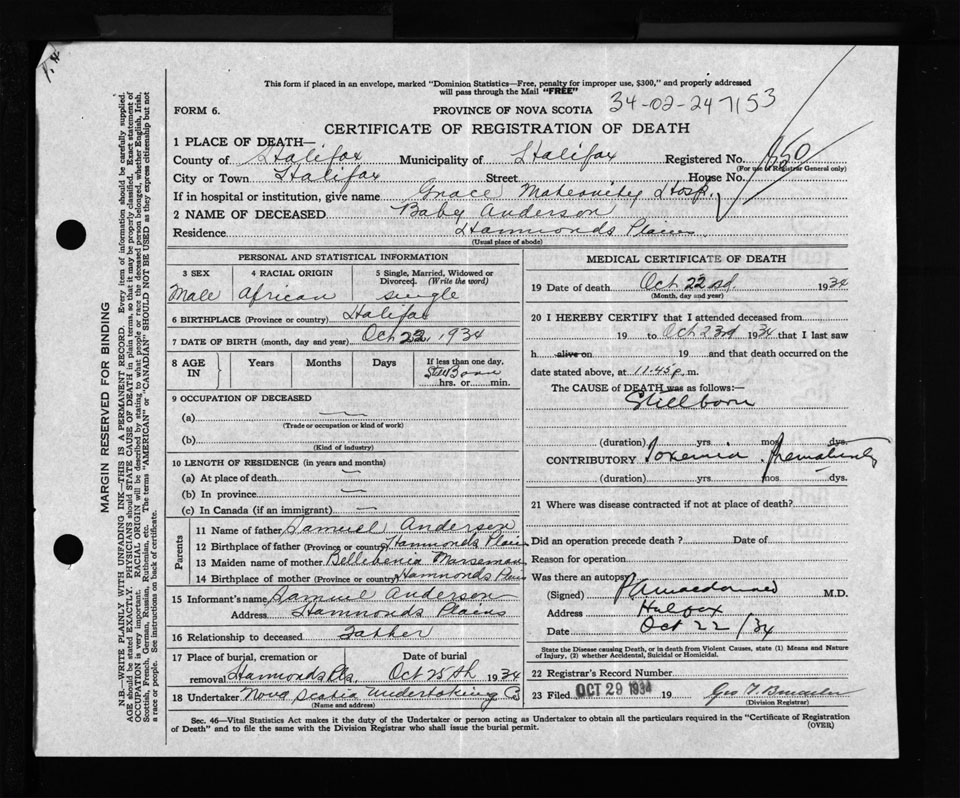 This form if placed in an envelope, marked "Dominion Statistics—Free, penalty for improper use, $300," and properly addressed
will pass through the Mail "FREE"
FORM 6.
PROVINCE OF NOVA SCOTIA 34-02-247153
CERTIFICATE OF REGISTRATION OF DEATH
1 PLACE OF DEATH—
County of Halifax Municipality of Halifax Registered No. 550
(For use of Registrar General only)
City or Town Halifax Street House No.
If in hospital or institution, give name Grace Maternity Hosp.
2 NAME OF DECEASED Baby Anderson
Residence Hammonds Plains
(Usual place of abode)
PERSONAL AND STATISTICAL INFORMATION
3 SEX 4 RACIAL ORIGIN 5 Single, Married, Widowed or
Divorced. (Write the word)
Male African single
6 BIRTHPLACE (Province or country) Halifax
7 DATE OF BIRTH (month, day and year) Oct 22, 1934
8 AGE IN Years Months Days If less than one day,
Still Born
hrs. or min.
9 OCCUPATION OF DECEASED
(a) —
(Trade or occupation or kind of work)
(b) —
(Kind of industry)
10 LENGTH OF RESIDENCE (in years and months)
(a) At place of death —
(b) In province —
(c) In Canada (if an immigrant) —
Parents
11 Name of father Samuel Anderson
12 Birthplace of father (Province or country) Hammonds Plains
13 Maiden name of mother Manseman
14 Birthplace of mother (Province or country) Hammonds Plains
15 Informant's name Samuel Anderson
Address Hammonds Plains
16 Relationship to deceased Father
17 Place of burial, cremation or Date of burial
removal Hammonds Pls. Oct 25th 1934
18 Undertaker Nova Scotia Undertaking
(Name and address)
MEDICAL CERTIFICATE OF DEATH
19 Date of death Oct 22nd 1934
(Month, day and year)
20 I HEREBY CERTIFY that I attended deceased from
19 to Oct 23rd 1934 that I last saw
h alive on 19 and that death occurred on the
date stated above, at 11.45 p. m.
The CAUSE of DEATH was as follows:—
Stillborn
(duration) yrs. mos. dys.
CONTRIBUTORY Toxemia Prematurity
(duration) yrs. mos. dys.
21 Where was disease contracted if not at place of death?
Did an operation precede death? Date of
Reason for operation
Was there an autopsy
(Signed) M.D.
Address Halifax
Date Oct 22 / 34
State the Disease causing Death, or in death from Violent Causes, state (1) Means and Nature
of Injury, (2) whether Accidental, Suicidal or Homicidal.
22 Registrar's Record Number
23 Filed OCT 29 1934 19
(Division Registrar)
Sec. 46—Vital Statistics Act makes it the duty of the Undertaker or person acting as Undertaker to obtain all the particulars required in the "Certificate of Registration
of Death" and to file the same with the Division Registrar who shall issue the burial permit. (OVER)
MARGIN RESERVED FOR BINDING
N.B.—WRITE PLAINLY WITH UNFADING INK—THIS IS A PERMANENT RECORD. Every item of information should be carefully supplied.
AGE should be stated EXACTLY. PHYSICIANS should STATE CAUSE OF DEATH in plain terms, so that it may be properly classified. Exact statement of
OCCUPATION is very important. RACIAL ORIGIN will be described by stating to what people or race the deceased person belonged, whether English, Irish,
Scottish, French, German, Russian, Ruthenian, etc. The terms "AMERICAN" or "CANADIAN" SHOULD NOT BE USED as they express citizenship but not
a race or people. See instructions on back of certificate.